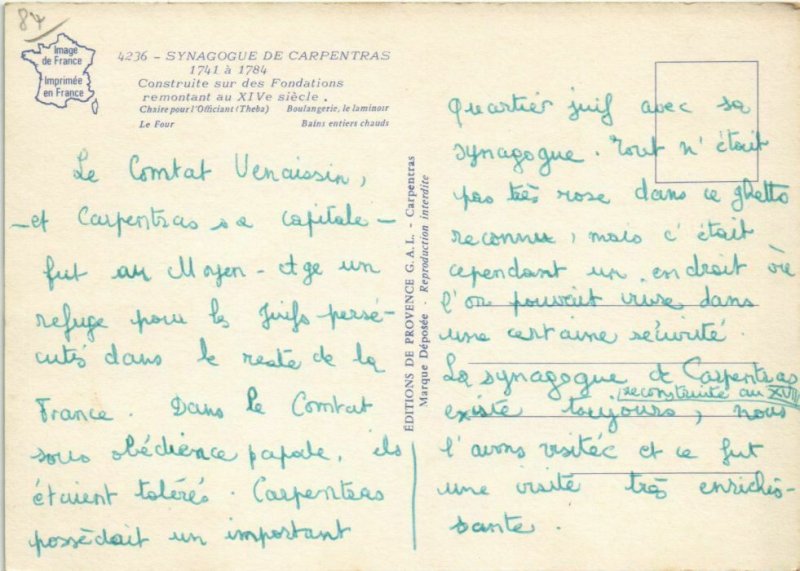 84
Image
de France
Imprimée
en France
4236 - SYNAGOGUE DE CARPENTRAS
1741 à 1784
Construite sur des Fondations
remontant au XIVe siècle.
Chaire pour l'Officiant (Theba) Boulangerie, le laminoir
Le Four Bains entiers chauds
Le Comtat Venaissin,
-et Carpentras sa capitale-
fut au Moyen-Age un
refuge pour les Juifs persé-
cutés dans le reste de la
France. Dans le Comtat
sous obédience papale, ils
étaient tolérés. Carpentras
possédait un important
ÉDITIONS DE PROVENCE G.A.L. - Carpentras
Marque Déposée - Reproduction interdite
Quartier juif avec sa
synagogue. Tout n'était
pas très rose dans ce ghetto
reconnu, mais c'était
cependant un endroit où
l'on pouvait vivre dans
une certaine sécurité.
La synagogue de Carpentras
(reconstruite au XVIII
existe toujours, nous
l'avons visitée et ce fut
une visite très enrichis-
sante.